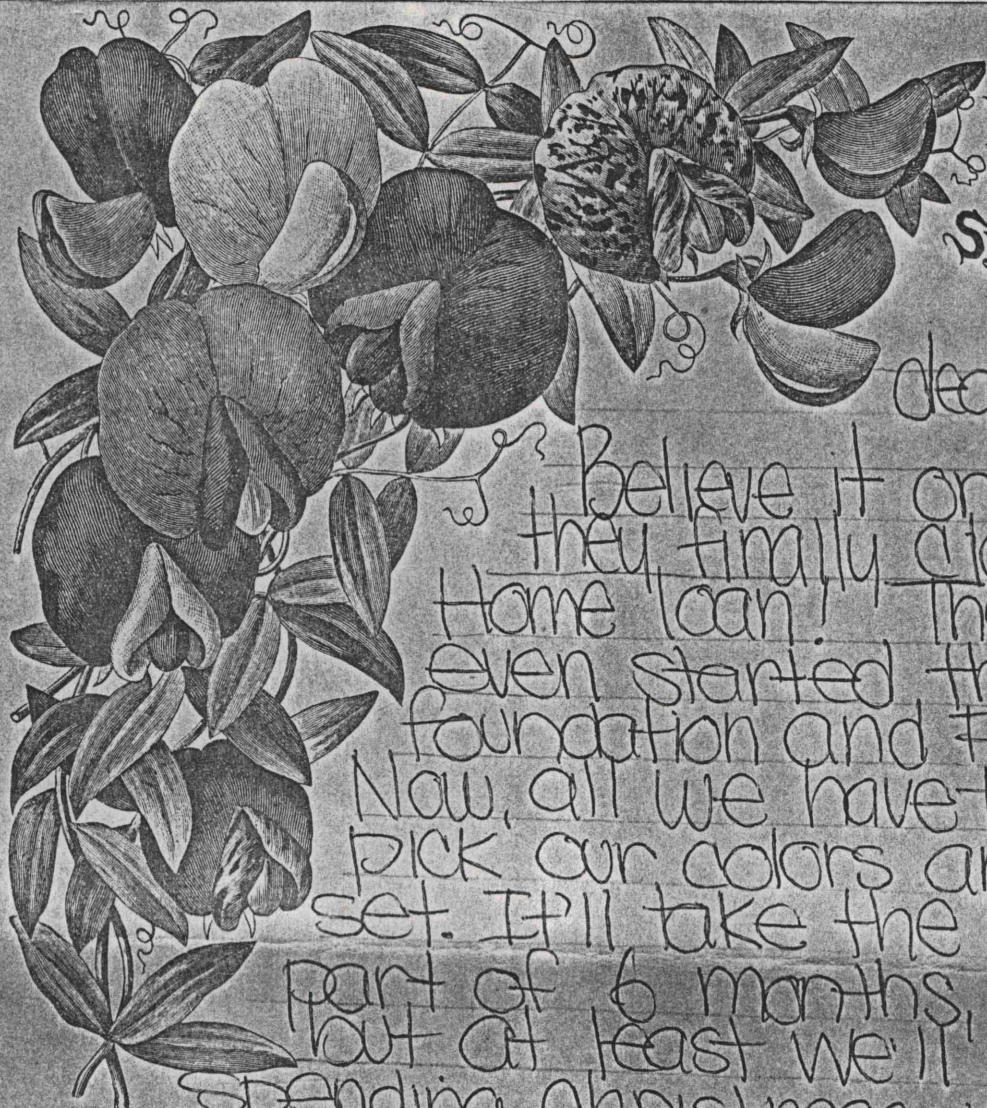 S
dea
Believe it or
they finally
Home loan! The
even started th
foundation and
Now, all we have
pick our colors an
set. It'll take the
part of 6 months,
but at least we'll
spending